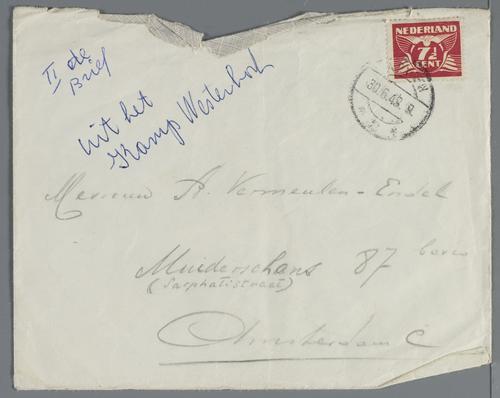 II de
Brief
Uit het
Kamp Westerbork
NEDERLAND
7½
CENT
30.6.43. 8.
Mevrouw A. Vermeulen-Endel
Muiderschans 87 boven
(Sarphatistraat)
Amsterdam C